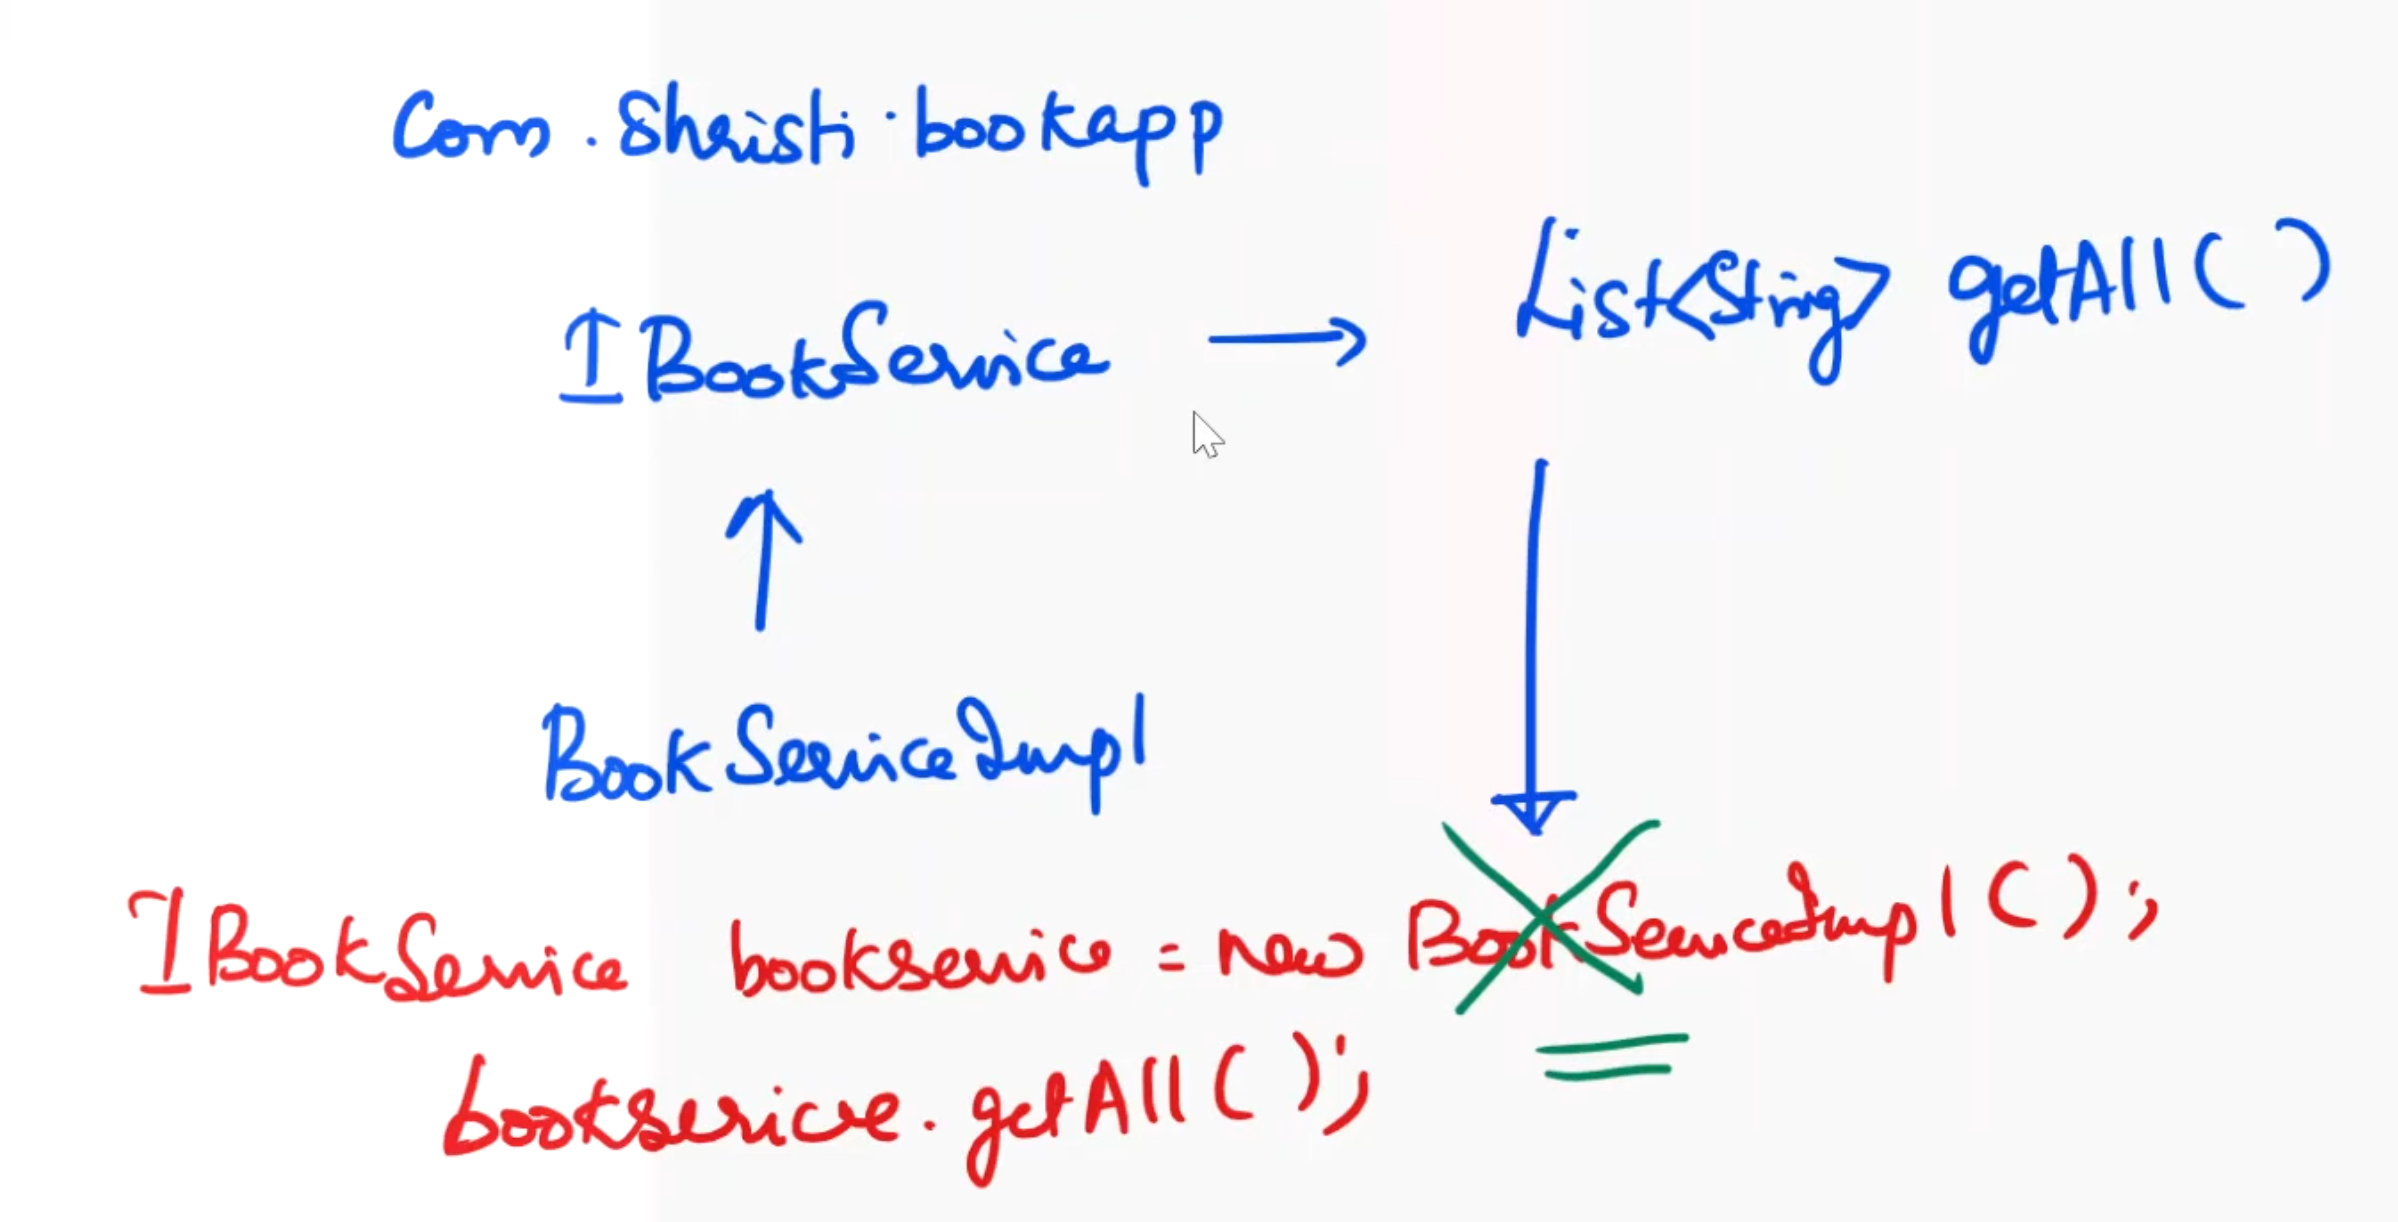 Com.Shristi.bookapp
IBookService → List<String> getAll()
BookServiceImpl
IBookService bookservice = new BookServiceImpl();
bookserivce.getAll();